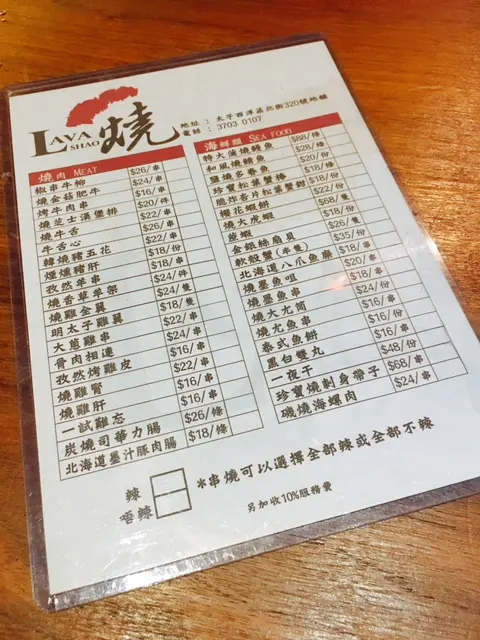 LAVA SHAO 燒
地址: 太子西洋菜北街320號地舖
電話: 3703 0107
燒肉 MEAT
椒串牛柳 $26/串
燒金菇肥牛 $24/串
烤牛肉串 $18/串
燒芝士漢堡排 $20/件
燒牛舌 $22/串
牛舌心 $26/串
韓燒豬五花 $22/串
煙燻豬肝 $18/份
孜然羊串 $18/串
燒香草羊架 $24/件
燒雞全翼 $18/隻
明太子雞翼 $24/隻
大蔥雞串 $22/串
骨肉相連 $24/串
孜然烤雞皮 $16/串
燒雞腎 $16/串
燒雞肝 $16/串
一試難忘 $16/串
炭燒司華力腸 $26/條
北海道墨汁豚肉腸 $18/條
海鮮類 SEA FOOD
特大蒲燒鰻魚 $88/條
和風燒鯖魚 $28/條
鹽燒多春魚 $20/份
珍寶松葉蟹棒
脆炸香片松葉蟹鉗
櫻花蝦餅
燒大虎蝦 $68/隻
金銀絲扇貝
軟殼蟹(半隻) $35/份
北海道八爪魚腳 $18/份
燒墨魚咀 $20/串
燒墨魚串 $18/串
燒大尤筒
燒尤魚串 $24/份
泰式魚餅 $16/串
黑白雙丸 $16/串
一夜干 $48/份
珍寶燒刺身帶子 $68/串
磯燒海螺肉 $24/串
辣
唔辣
*串燒可以選擇全部辣或全部不辣
另加收10%服務費